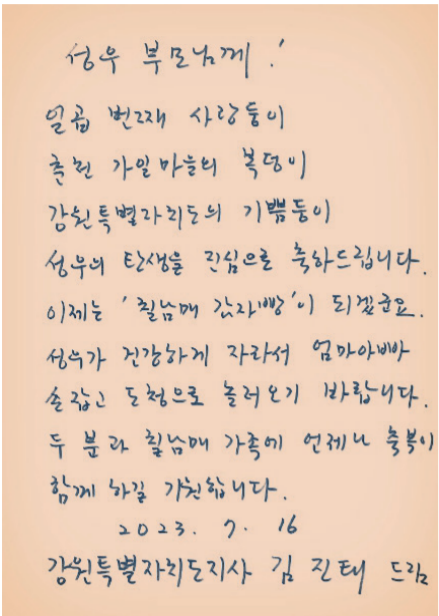 성우 부모님께!
일곱 번째 사랑둥이
춘천 가일마을의 복덩이
강원특별자치도의 기쁨둥이
성우의 탄생을 진심으로 축하드립니다.
이제는 '칠남매 감자빵'이 되겠군요.
성우가 건강하게 자라서 엄마아빠
손잡고 도청으로 놀러오기 바랍니다.
두 분과 칠남매 가족에 언제나 축복이
함께 하길 기원합니다.
2023. 7. 16
강원특별자치도지사 김진태 드림